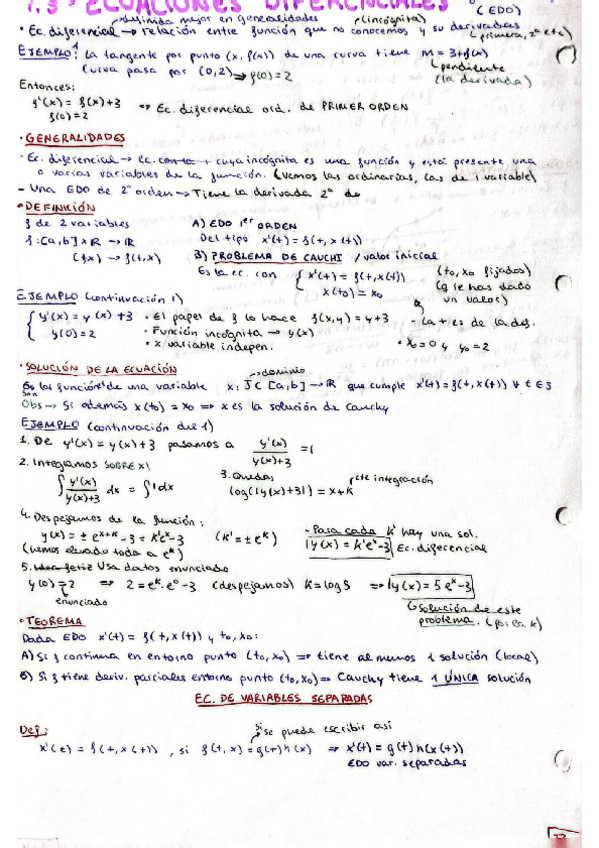 1.3 - ECUACIONES DIFERENCIALES (EDO)
definida mejor en generalidades (incógnita)
• Ec. diferencial → relación entre función que no conocemos y su derivadas (primera, 2ª etc)
EJEMPLO 1 La tangente por punto (x, f(x)) de una curva tiene m = 3+f(x)
Curva pasa por (0,2) → f(0)=2 pendiente (la derivada)
Entonces:
f'(x) = f(x)+3 ⇒ Ec. diferencial ord. de PRIMER ORDEN
f(0)=2
• GENERALIDADES
• Ec. diferencial → Ec. cuya incógnita es una función y está presente una
o varias variables de la función. (vemos las ordinarias, las de 1 variable)
- Una EDO de 2º orden → Tiene la derivada 2ª de
• DEFINICIÓN
f de 2 variables A) EDO 1er ORDEN
f: [a,b] x ℝ → ℝ Del tipo x'(t) = f(t, x(t))
→ f(t,x) B) PROBLEMA DE CAUCHI / valor inicial
Es la ec. con { x'(t) = f(t, x(t)) (t0, x0 fijados)
x(t0) = x0 (q le has dado un valor)
EJEMPLO (continuación 1)
{ y'(x) = y(x) + 3 • El papel de f lo hace f(x,y) = y+3 - La t es de la def.
y(0) = 2 • Función incógnita → y(x)
• x variable indepen. • x0 = 0 y y0 = 2
• SOLUCIÓN DE LA ECUACIÓN → dominio
Son las función de una variable x: J ⊂ [a,b] → ℝ que cumple x'(t) = f(t, x(t)) ∀ t ∈ J
Obs → Si además x(t0) = x0 ⇒ x es la solución de Cauchy
EJEMPLO (continuación del 1)
1. De y'(x) = y(x)+3 pasamos a y'(x)/y(x)+3 = 1
2. Integramos SOBRE X! 3. Queda: cte integración
∫ y'(x)/y(x)+3 dx = ∫ 1 dx log(|y(x)+3|) = x+k
4. Despejamos de la función: - Para cada k' hay una sol.
y(x) = ± e^(x+k) -3 = k'e^x -3 (k' = ± e^k) |y(x) = k'e^x -3| Ec. diferencial
(hemos elevado toda a e^x)
5. Usa datos enunciado
y(0) = 2 ⇒ 2 = e^k · e^0 - 3 (despejamos) k = log 5 ⇒ |y(x) = 5e^x - 3|
enunciado Solución de este problema. (por la k)
• TEOREMA
Dada EDO x'(t) = f(t, x(t)) y t0, x0:
A) Si f continua en entorno punto (t0, x0) ⇒ tiene al menos 1 solución (local)
B) Si f tiene deriv. parciales entorno punto (t0, x0) ⇒ Cauchy tiene 1 ÚNICA solución
EC. DE VARIABLES SEPARADAS
Def: Si se puede escribir así
x'(t) = f(t, x(t)), si f(t,x) = g(t)h(x) ⇒ x'(t) = g(t)h(x(t))
EDO var. separadas